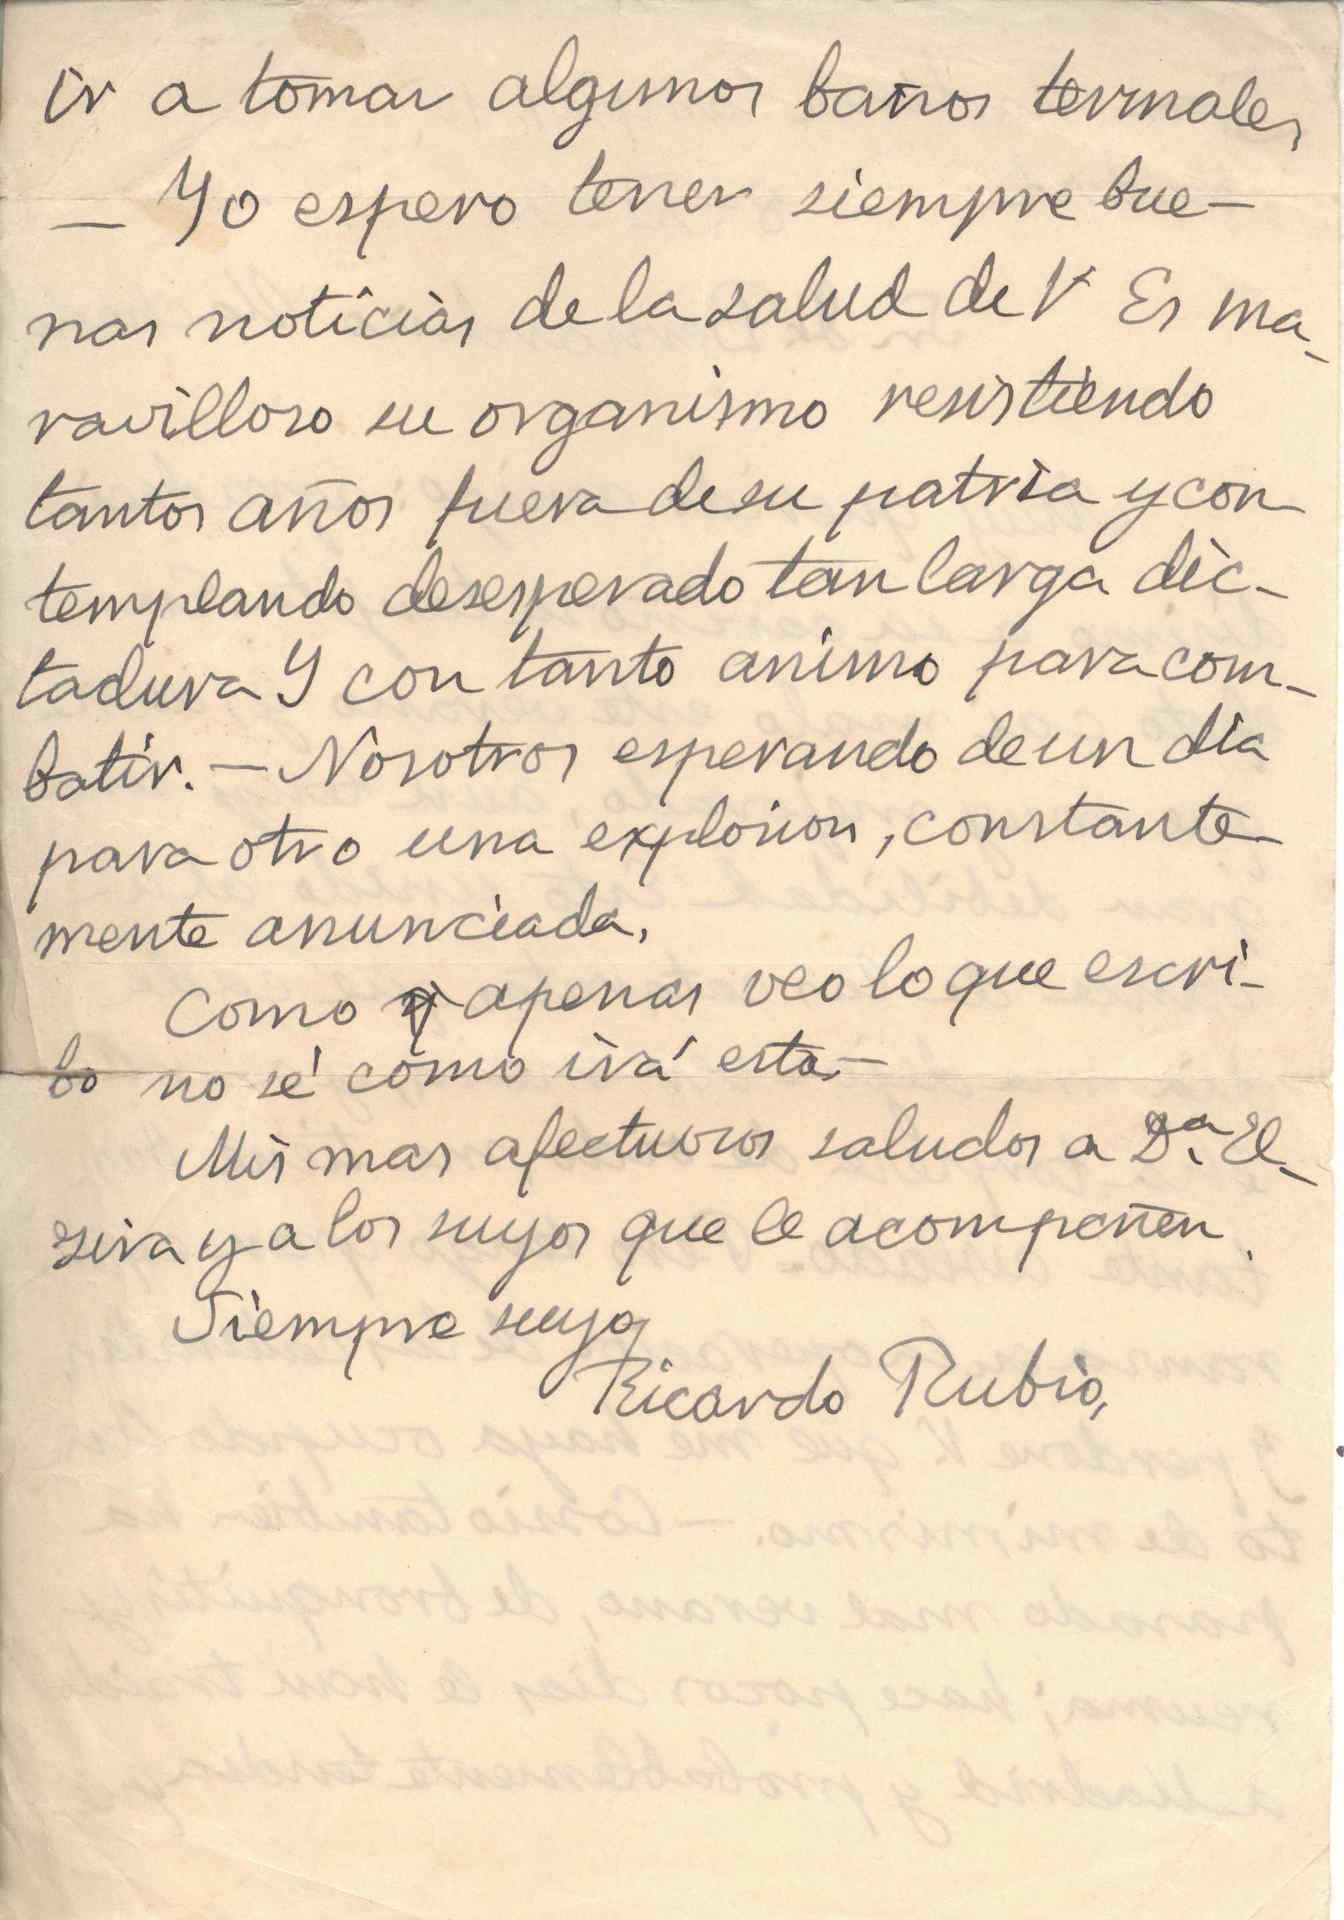 ir a tomar algunos baños termales
— Yo espero tener siempre bue-
nas noticias de la salud de V Es ma-
ravilloso su organismo resistiendo
tantos años fuera de su patria y con-
templando desesperado tan larga dic-
tadura Y con tanto animo para com-
batir. — Nosotros esperando de un dia
para otro una explosion, constante-
mente anunciada.
Como apenas veo lo que escri-
bo no sé cómo irá esta.—
Mis mas afectuosos saludos a Dª. El-
zira y a los suyos que le acompañen.
Siempre suyo
Ricardo Rubio,